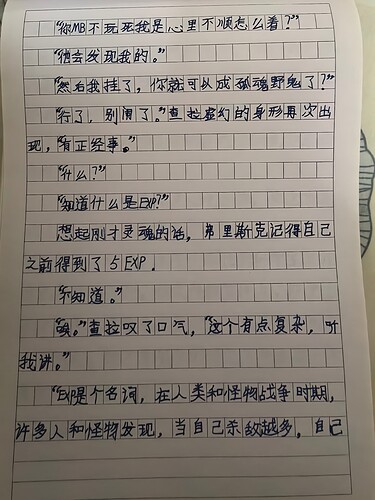 “你MB不玩死我是心里不顺怎么看？”
“他会发现我的。”
“然后我挂了，你就可以成孤魂野鬼了？”
“行了，别闹了。”查拉虚幻的身形再次出
现，“有正经事。”
“什么？”
“知道什么是EXP？”
想起刚才灵魂的话，弗里斯克记得自己
之前得到了5EXP.
“不知道。”
“唉。”查拉叹了口气，“这个有点复杂，听
我讲。”
“EXP是个名词，在人类和怪物战争时期，
许多人和怪物发现，当自己杀敌越多，自己